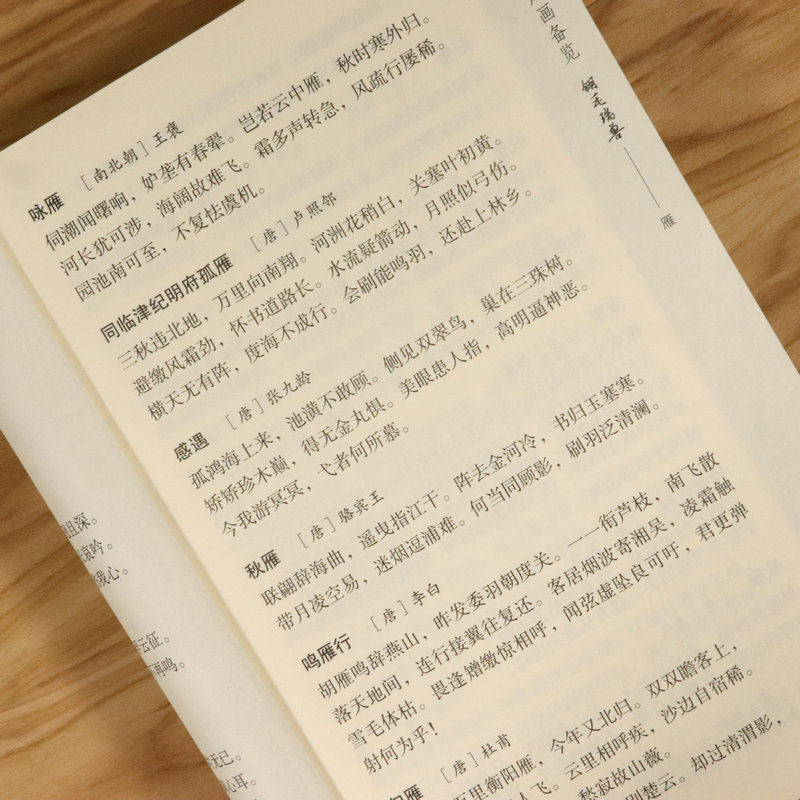 画备览
翎毛瑞兽
雁
咏雁 [南北朝]王褒
伺潮闻曙响，妒垄有春翚。岂若云中雁，秋时寒外归。
河长犹可涉，海阔故难飞。霜多声转急，风疏行屡稀。
园池南可至，不复怯虞机。
同临津纪明府孤雁 [唐]卢照邻
三秋违北地，万里向南翔。河洲花稍白，关塞叶初黄。
避缴风霜劲，怀书道路长。水流疑箭动，月照似弓伤。
横天无有阵，度海不成行。会刷能鸣羽，还赴上林乡。
感遇 [唐]张九龄
孤鸿海上来，池潢不敢顾。侧见双翠鸟，巢在三珠树。
矫矫珍木巅，得无金丸惧。美眼患人指，高明逼神恶。
今我游冥冥，弋者何所慕。
秋雁 [唐]骆宾王
联翩辞海曲，遥曳指江干。阵去金河冷，书归玉塞寒。
带月凌空易，迷烟逗浦难。何当同顾影，刷羽泛清澜。
鸣雁行 [唐]李白
胡雁鸣辞燕山，昨发委羽朝度关。一一衔芦枝，南飞散
落天地间，连行接翼往复还。客居烟波寄湘吴，凌霜触
雪毛体枯。畏逢矰缴惊相呼，闻弦虚坠良可吁，君更弹
射何为乎！
雁 [唐]杜甫
万里衡阳雁，今年又北归。双双瞻客上，
人飞。云里相呼疾，沙边自宿稀。
愁寂故山薇。
楚云。却过清渭影，
深。
哀吟。
我心。
云征。
再鸣。
已。
心耳。